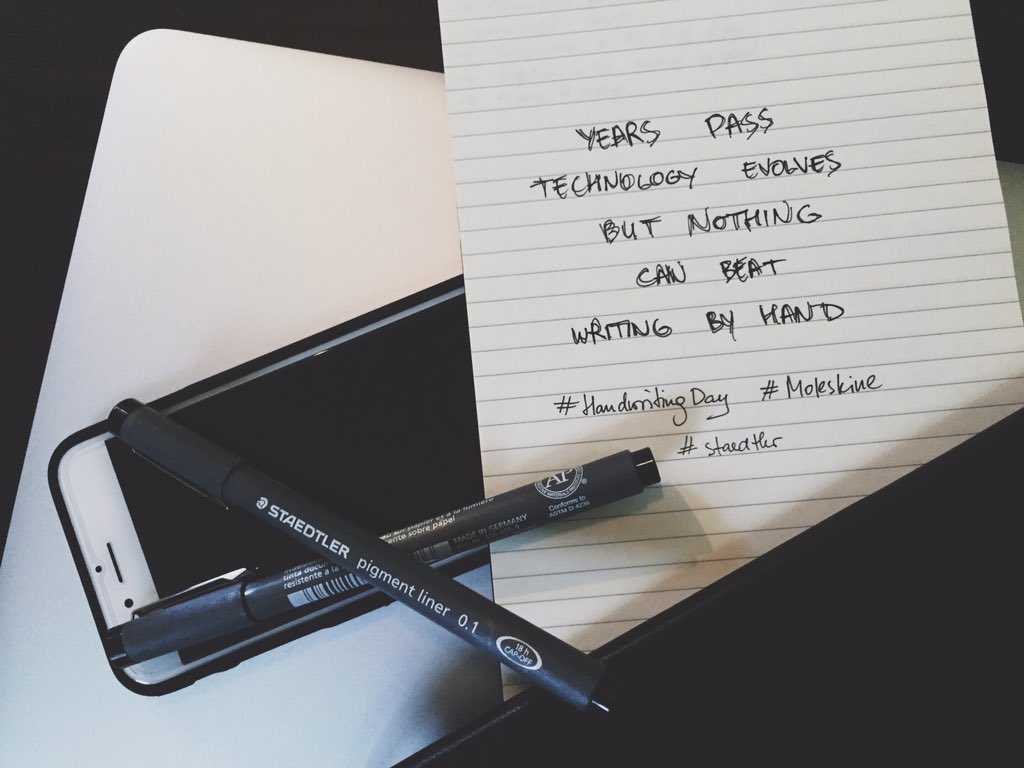 YEARS PASS
TECHNOLOGY EVOLVES
BUT NOTHING
CAN BEAT
WRITING BY HAND
#HandwritingDay #Moleskine
#staedtler
AP
Conforms to
ASTM D 4236
MADE IN GERMANY
sur papier et à la lumière
sobre papel
tinta
resistente a la
STAEDTLER pigment liner 0.1
18 h
CAP-OFF